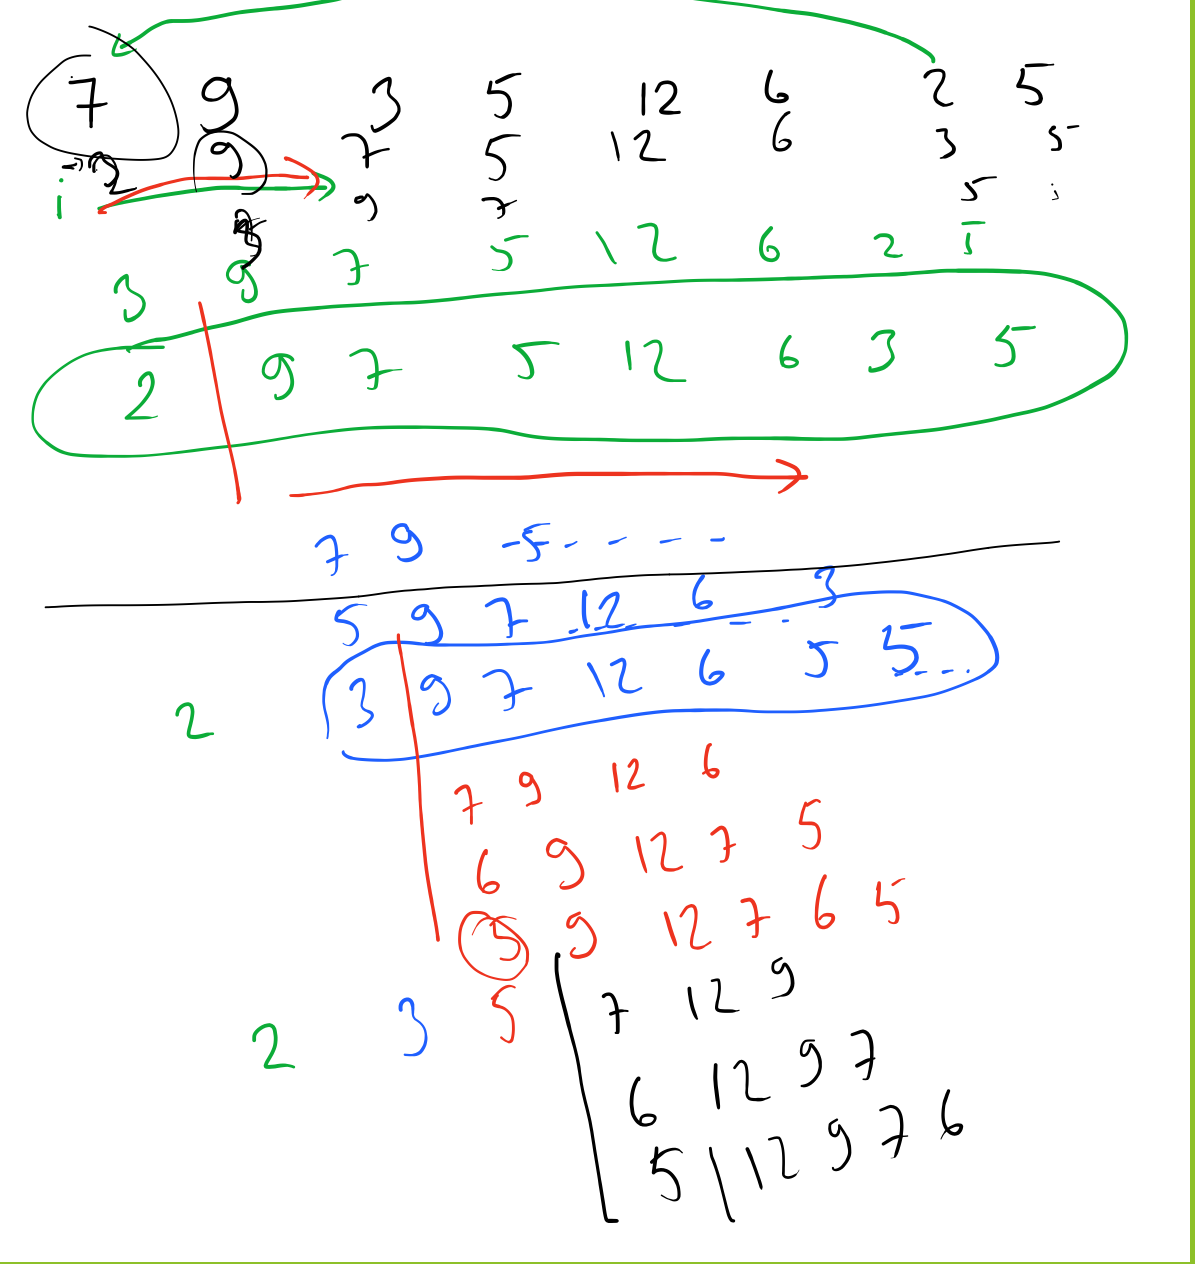 7 9 3 5 12 6 2 5
2 9 7 5 12 6 3 5
i 9 7 5
3 9 7 5 12 6 2 5
2 9 7 5 12 6 3 5
7 9 5
5 9 7 12 6 3
2 3 9 7 12 6 5 5
7 9 12 6
6 9 12 7 5
5 9 12 7 6 5
2 3 5 7 12 9
6 12 9 7
5 12 9 7 6